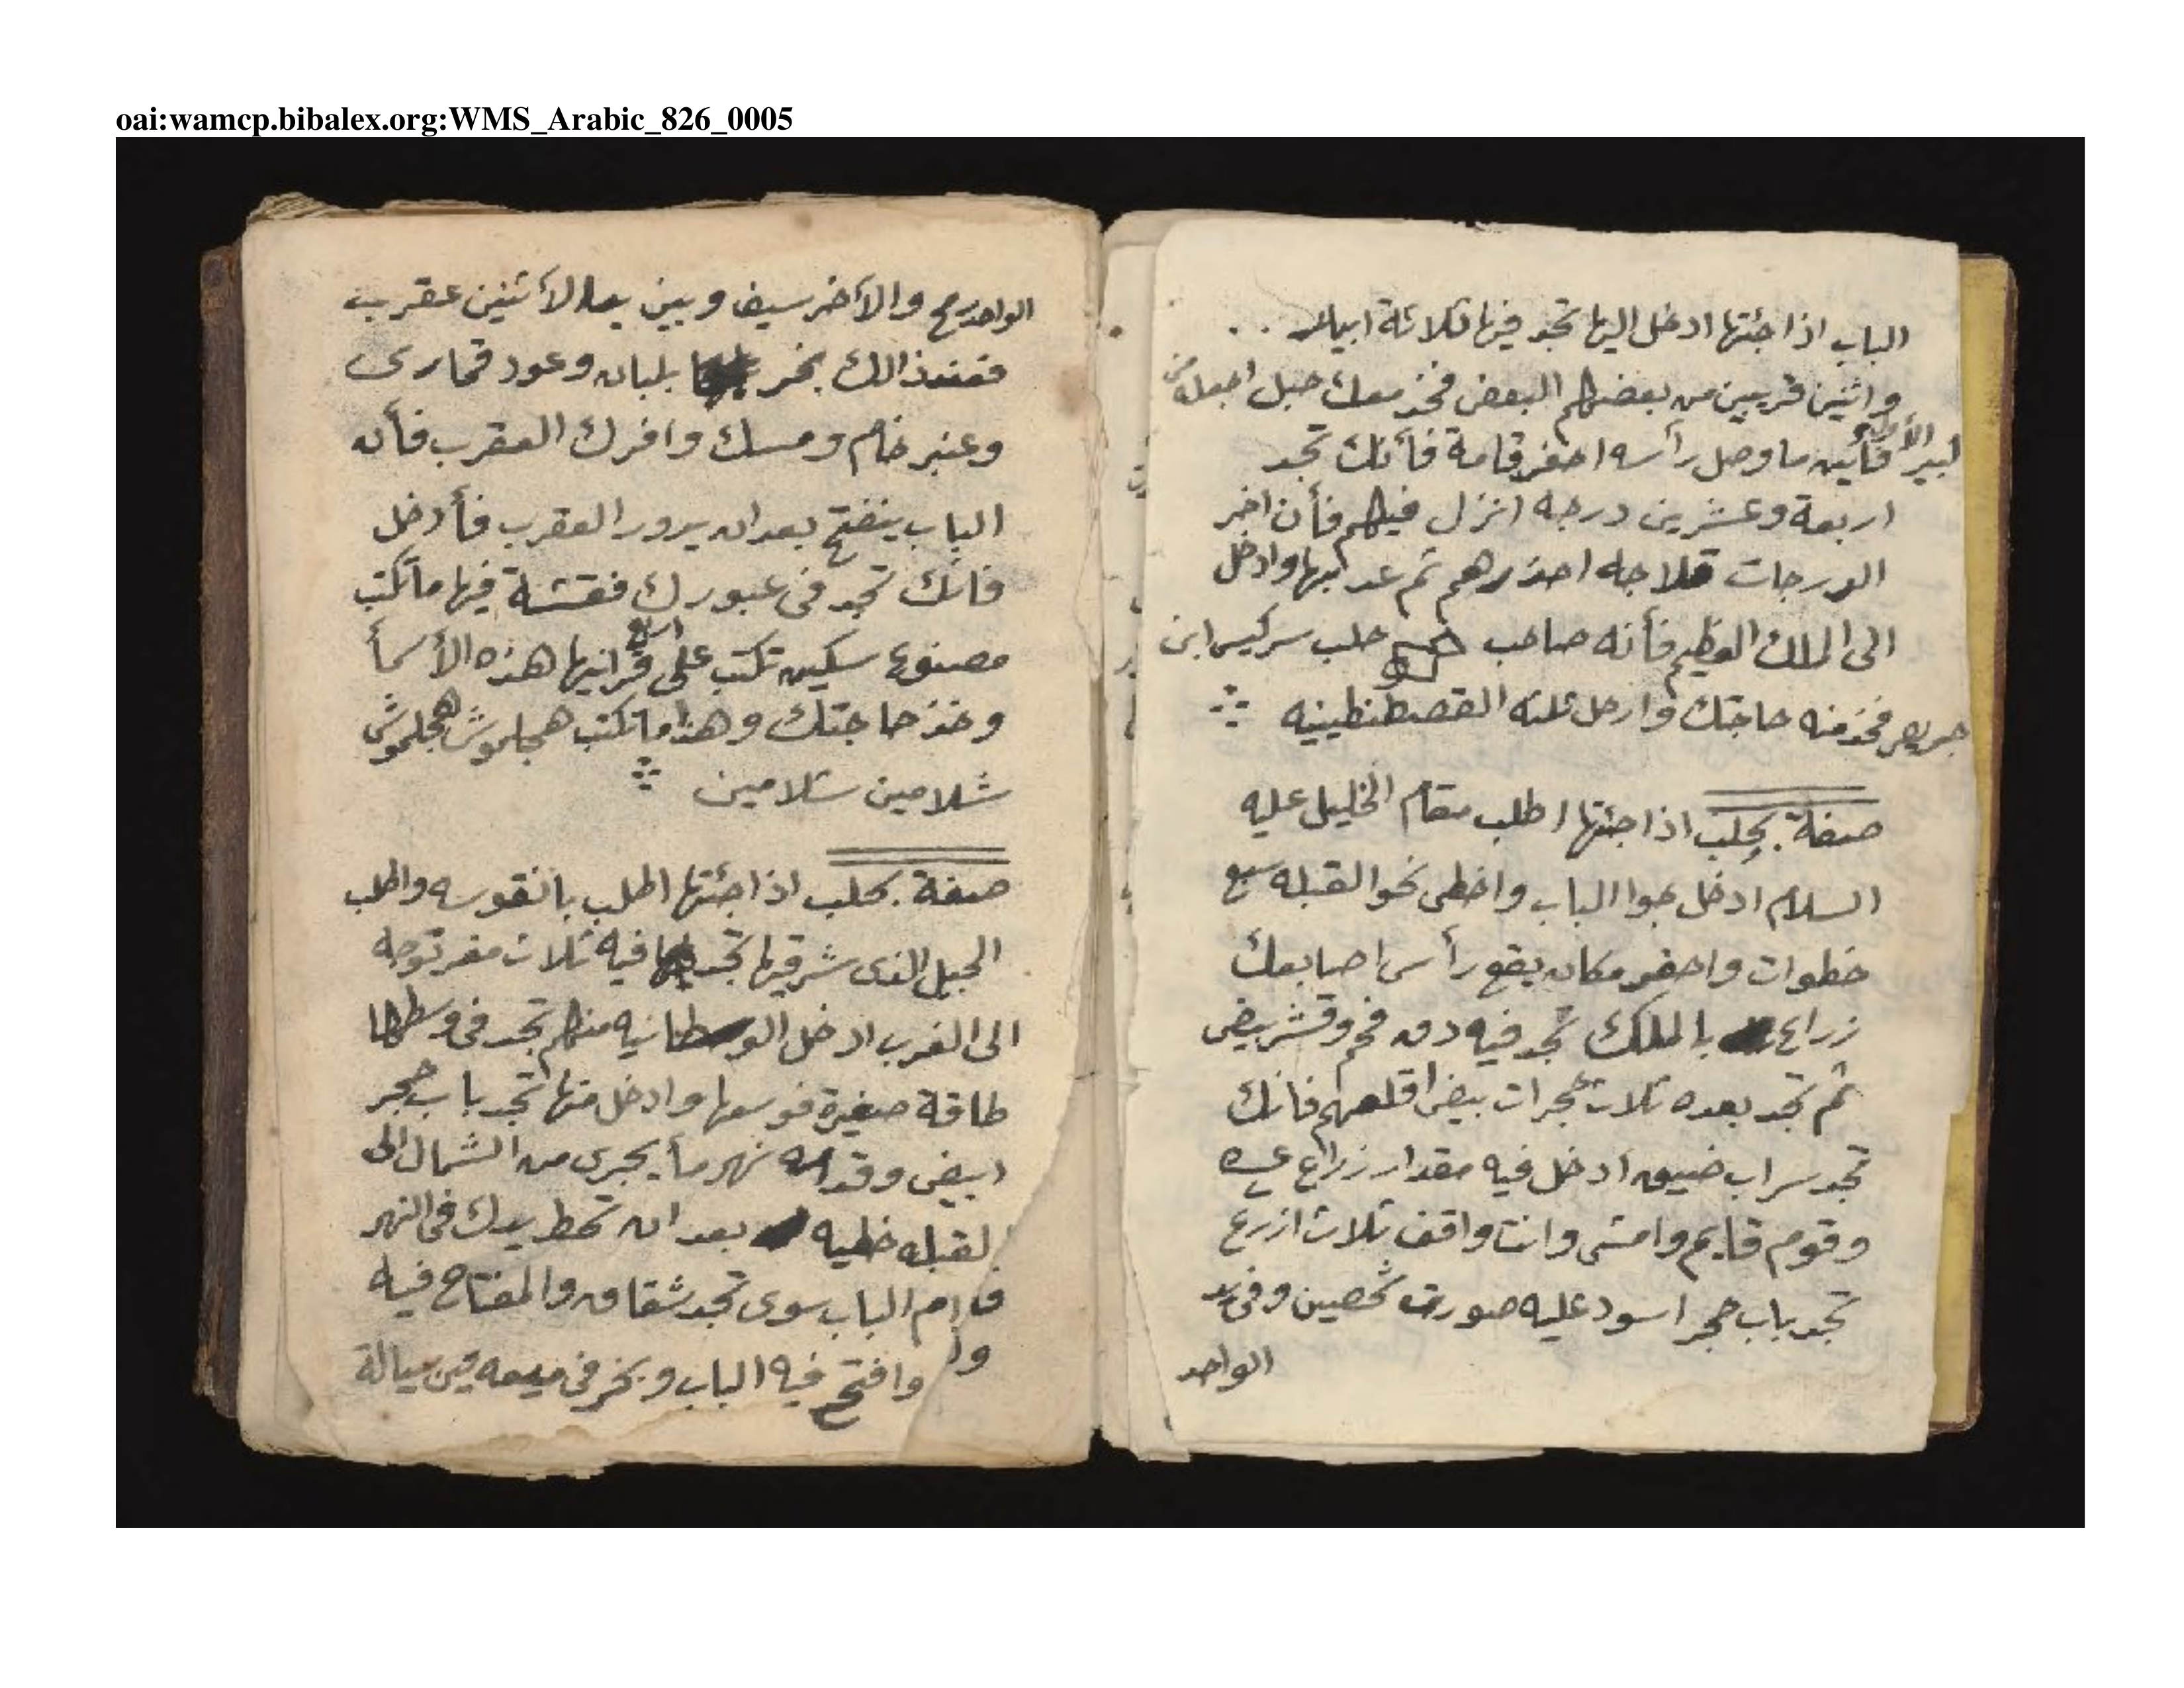 oai:wamcp.bibalex.org:WMS_Arabic_826_0005
الباب اذا جئتها ادخل اليها تجد فيها ثلاثة ابيار
واثنين قريبين من بعضهم البعض فخذ معك حبل اجعله من
فأين ما وصل رأسه احفر قامة فأنك تجد
اربعة وعشرين درجه انزل فيهم فأن اخر
الدرجات احذرهم ثم وادخل
الى الملك العظيم فأنه صاحب حلب سركيس ابن
فخذ منه حاجتك وارحل القصطنطينيه
صفة بحلب اذا جئتها اطلب مقام الخليل عليه
السلام ادخل جوا الباب واخطى نحو القبله سبع
خطوات واحفر مكان يقع رأس اصابعك
زراع بالملك تجد فيه دق فحم وقشر بيض
ثم تجد بعده ثلاث حجرات بيض اقلعهم فانك
تجد سراب ضيق ادخل فيه مقدار زراع
وقوم قايم وامشى وانت واقف ثلاث ازرع
تجد باب حجر اسود عليه صورت شخصين وفى يد
الواحد
الواحد رمح والأخر سيف وبين يد الأثنين عقرب
فعند ذالك بخر بلبان وعود قمارى
وعنبر خام ومسك وافرك العقرب فأنه
الباب ينفتح بعد ان يدور العقرب فأدخل
فانك تجد فى عبورك فقشة فيها ما تكتب
مصنوع سكين تكتب على اربع قرانيها هذه الأسمأ
وخذ حاجتك وهذا ما تكتب هجلموش هجلموش
شلامين شلامين
صفة بحلب اذا جئتها اطلب بانقوسه واطلب
الجبل الذى شرقيها تجد فيه ثلاث مغر توجه
الى الغرب ادخل الوسطانيه منهم تجد فى وسطها
طاقة صغيرة فوسعها وادخل منها تجد باب حجر
ابيض وقدامه نهر مأ يجرى من الشمال الى
القبله خطيه بعد ان تحط يدك فى النهر
قدام الباب سوى تجد شقاق والمفتاح فيه
وافتح فيه الباب وبخر فى ميعه